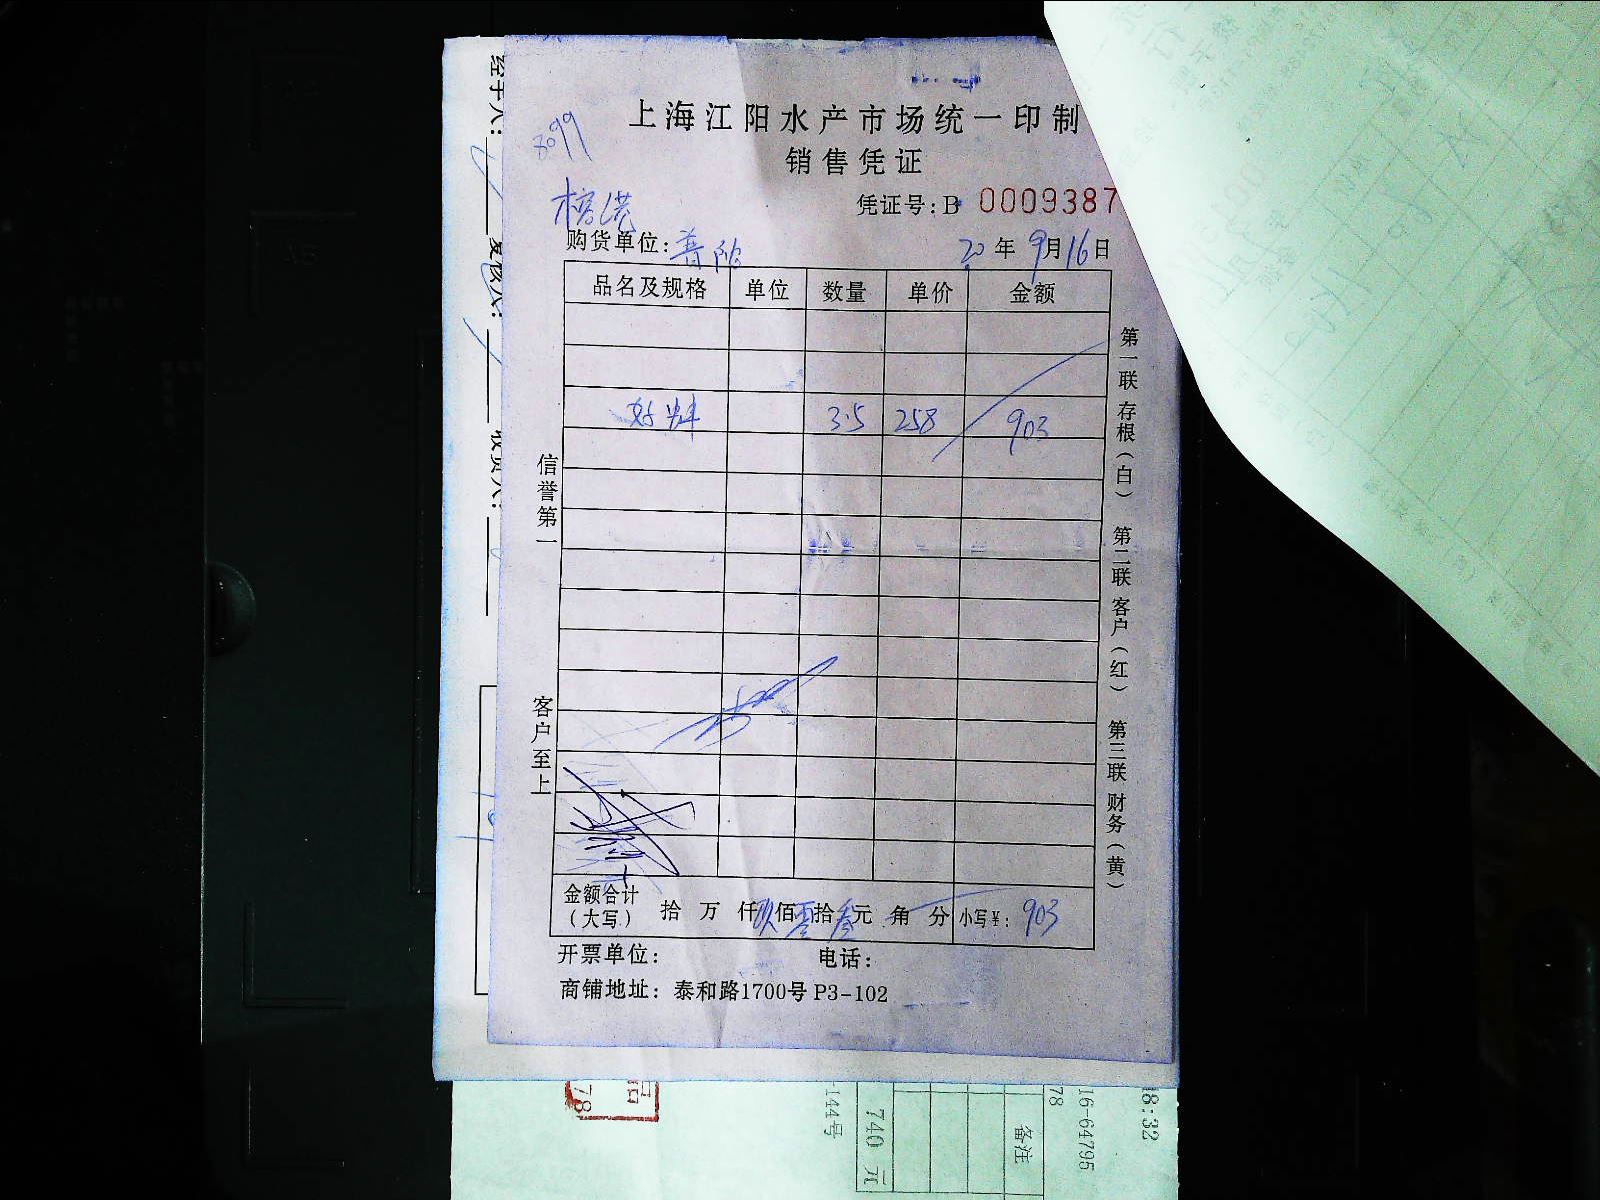 上海江阳水产市场统一印制
销售凭证
8099
凭证号:B 0009387
榕港
购货单位:普陀 20年9月16日
品名及规格 单位 数量 单价 金额
3.5 258 903
金额合计(大写) 拾 万 仟 玖佰零拾叁元 角 分 小写¥: 903
开票单位: 电话:
商铺地址: 泰和路1700号 P3-102
信誉第一
客户至上
第一联 存根(白) 第二联 客户(红) 第三联 财务(黄)
经手人:
复核人:
收货人:
78
-144号
740 元
备注
78
16-64795
08:32